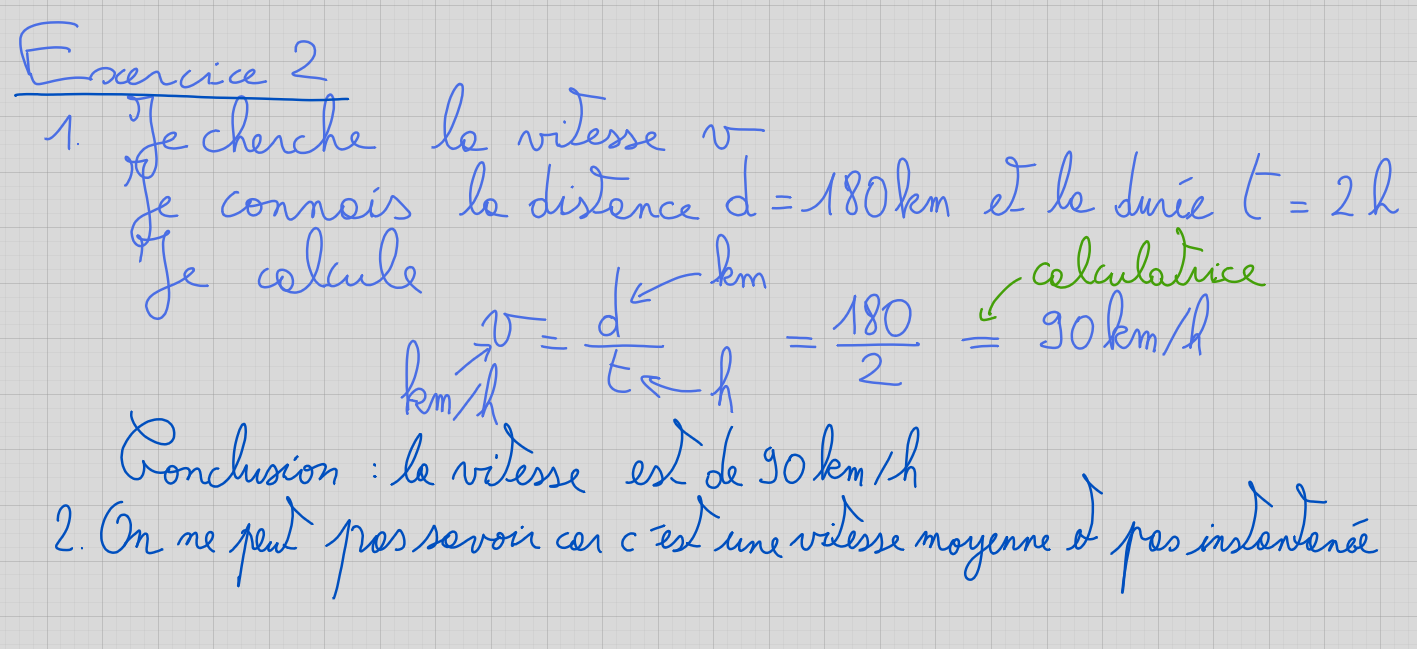 Exercice 2
1. Je cherche la vitesse v
Je connais la distance d = 180 km et la durée t = 2 h
Je calcule
calculatrice
km
v = d/t = 180/2 = 90 km/h
km/h
h
Conclusion : la vitesse est de 90 km/h
2. On ne peut pas savoir car c'est une vitesse moyenne et pas instantanée